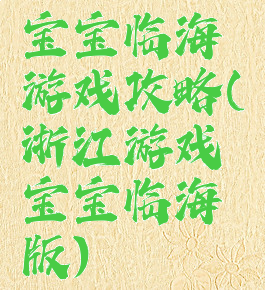 宝宝临海
游戏攻略(
浙江游戏
宝宝临海
版)